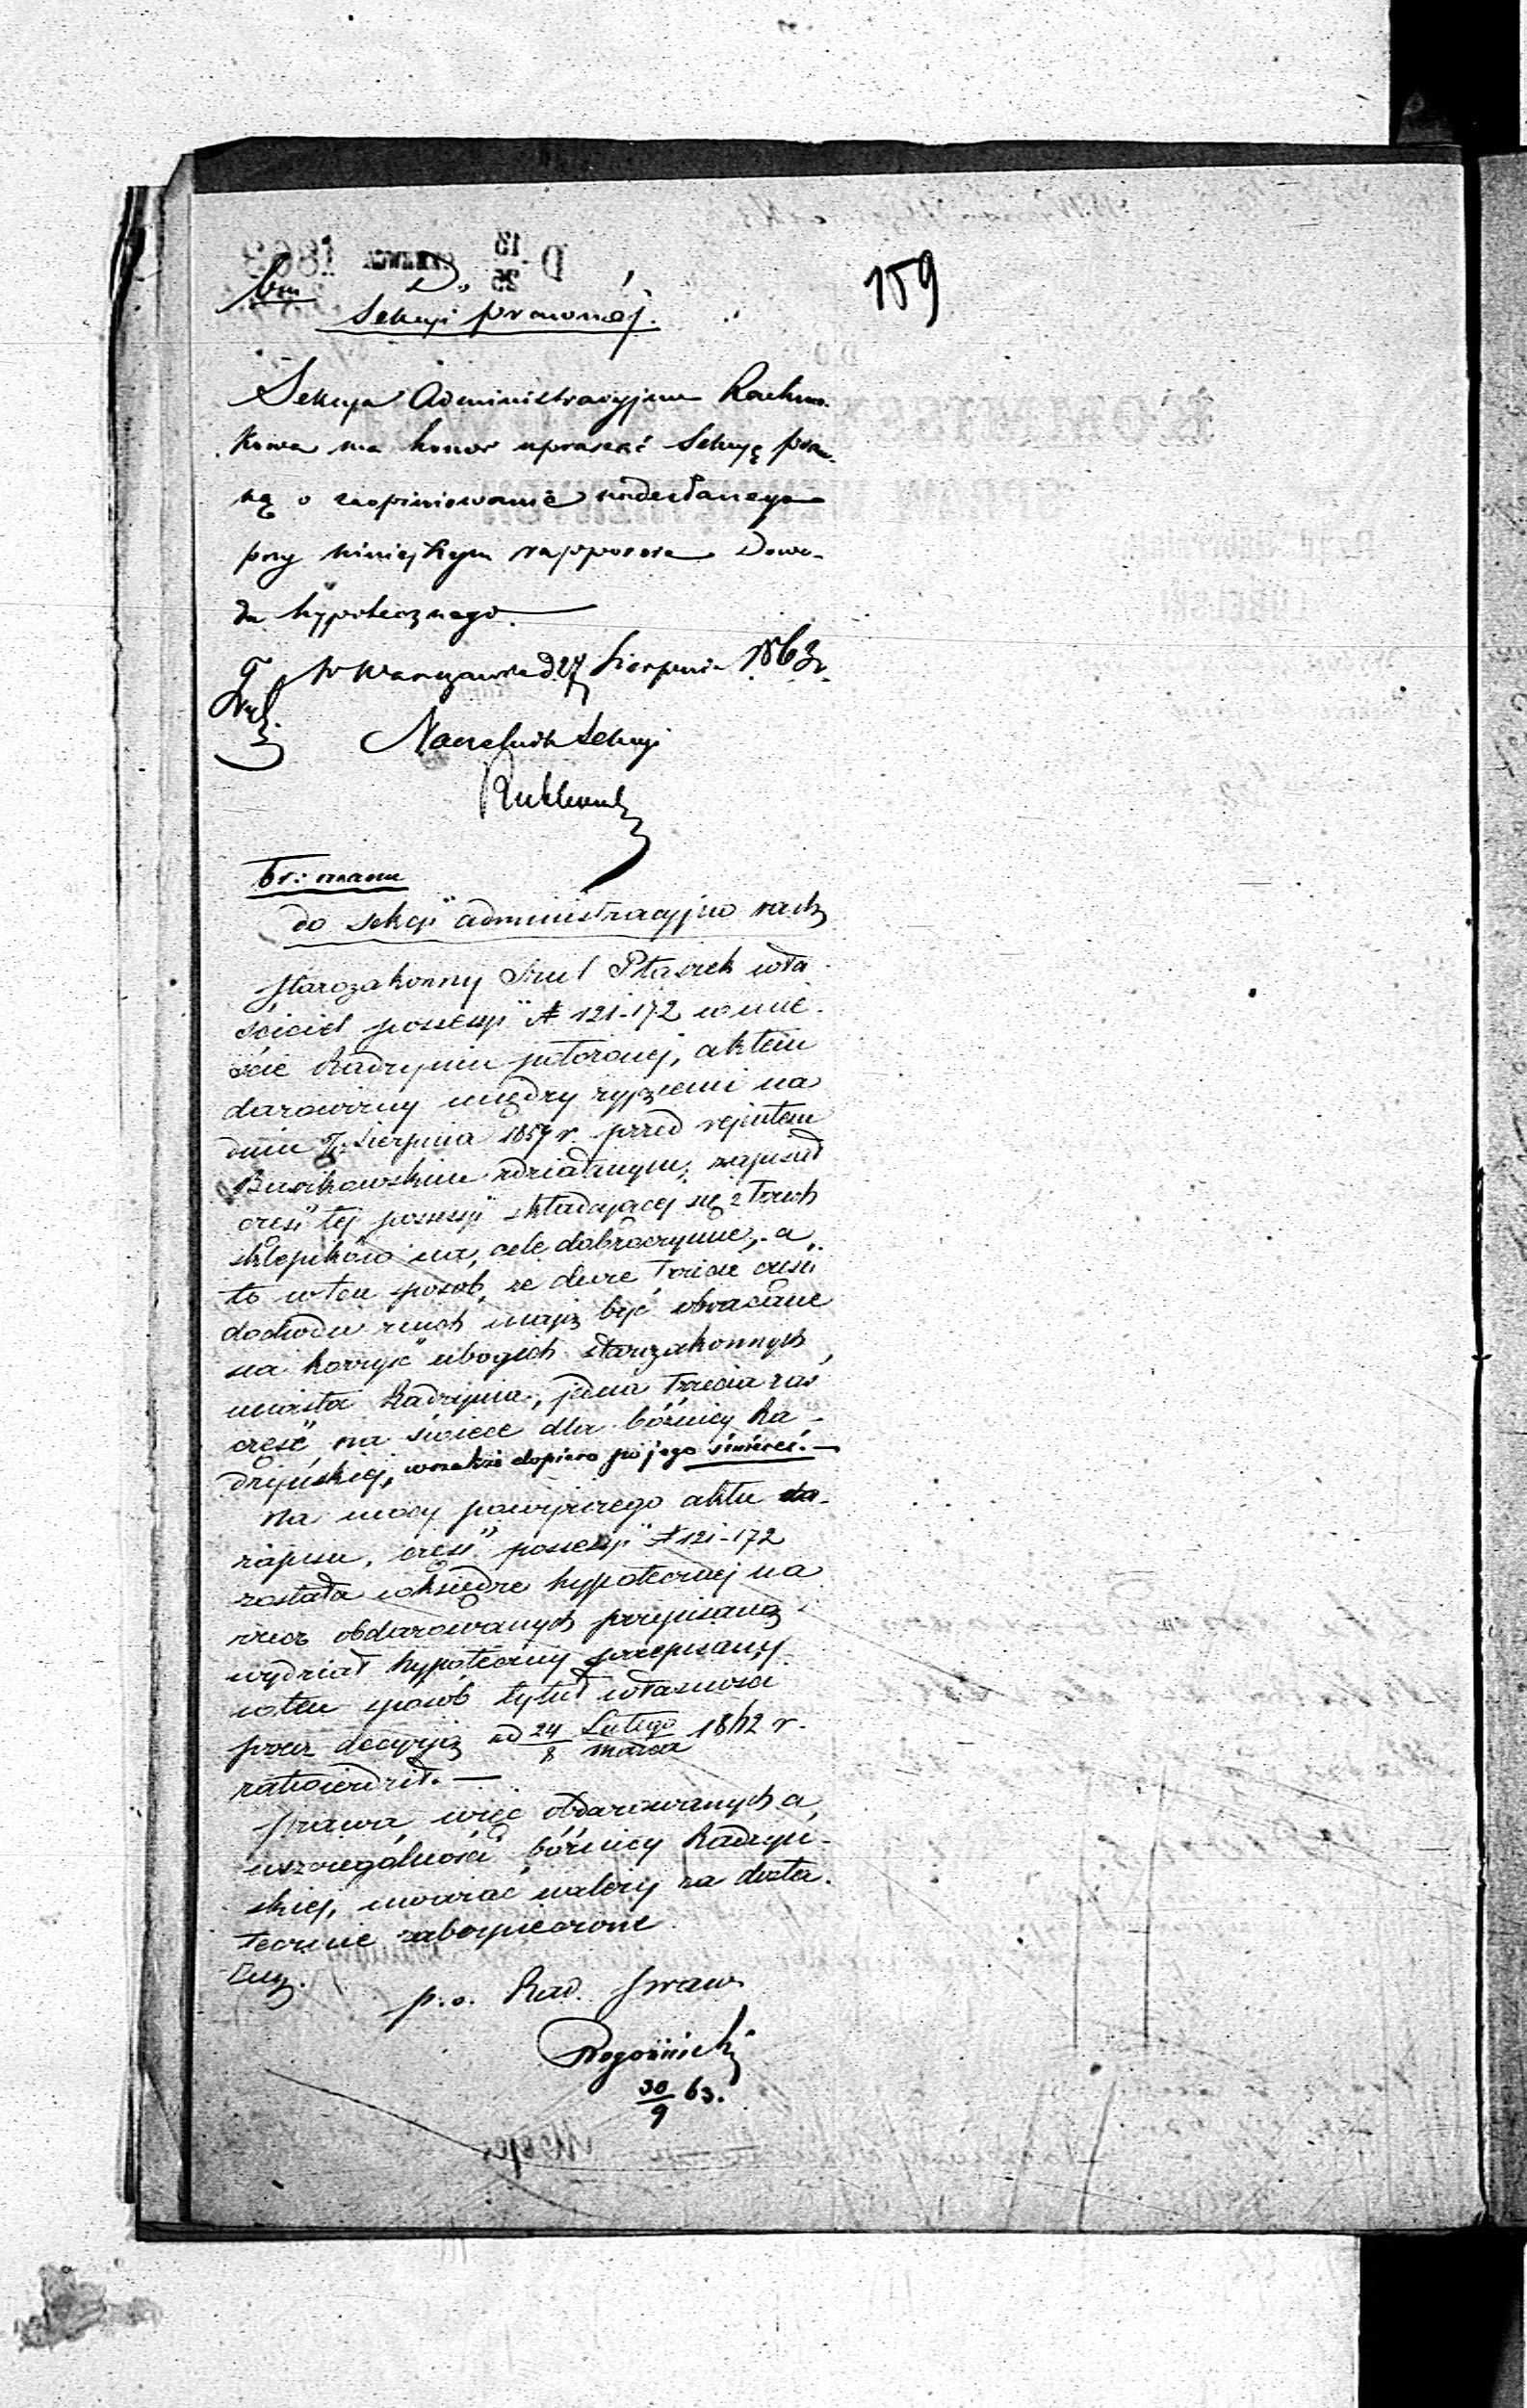 159
bm Do
Sekcyi prawnej.
Sekcya Administracyjno Rachun-
kowa ma honor upraszać Sekcyę praw-
ną o zaopiniowanie nadesłanego
przy niniejszym rapporcie Dowo-
du hypotecznego.
W Warszawie d. 27 Sierpnia 1863 r.
Naczelnik Sekcyi
br: manu
do sekcji administracyjno rach
Starozakonny Srul Ptaszek wła-
ściciel possessyi № 121-172 w mie-
ście Radzyniu położonej, aktem
darowizny między żyjącemi na
dniu Sierpnia 1857 r. przed rejentem
zdziałanym, zapisał
część tej possessyi składającej się z trzech
sklepików na cele dobroczynne, a
to w ten sposób, że dwie trzecie części
dochodu z nich mają być obracane
na korzyść ubogich starozakonnych
miasta Radzynia, jedna trzecia zaś
część na świece dla bóżnicy Ra-
dzyńskiej, wszakże dopiero po jego śmierci.—
Na mocy powyższego aktu da-
zapisu, część possessyi № 121-172
została w księdze hypotecznej na
rzecz obdarowanych przepisaną
wydział hypoteczny przepisany
w ten sposób tytuł własności
przez decyzją z d 24/8 Lutego/Marca 1862 r.
zatwierdził.—
Prawa więc obdarowanych a
w szczególności bóżnicy Radzyń-
skiej, uważać należy za dosta-
tecznie zabezpieczone
p.o. Rad. Praw.
Rogoźnicki
30/9 63.